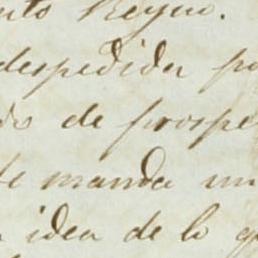 nto Reyno.
despedida po
de prospe
te manda un
idea de lo q